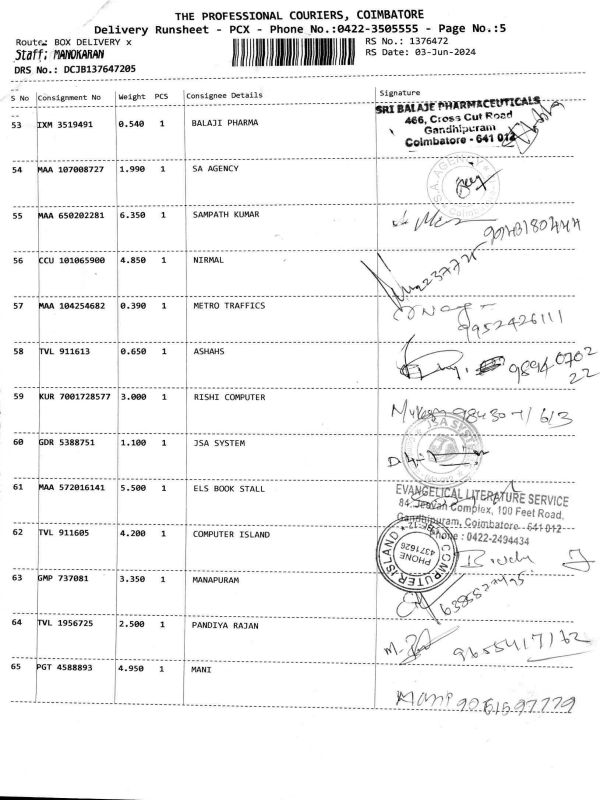 THE PROFESSIONAL COURIERS, COIMBATORE
Delivery Runsheet - PCX - Phone No.:0422-3505555 - Page No.:5
Route: BOX DELIVERY x
RS No.: 1376472
Staff: MANOKARAN
RS Date: 03-Jun-2024
DRS No.: DCJB137647205
S No Consignment No Weight PCS Consignee Details Signature
53 IXM 3519491 0.540 1 BALAJI PHARMA
SRI BALAJE PHARMACEUTICALS
466, Cross Cut Road
Gandhipuram
Coimbatore - 641 012
54 MAA 107008727 1.990 1 SA AGENCY
S.A. AGENCY
55 MAA 650202281 6.350 1 SAMPATH KUMAR
56 CCU 101065900 4.850 1 NIRMAL
57 MAA 104254682 0.390 1 METRO TRAFFICS
9952426111
58 TVL 911613 0.650 1 ASHAHS
98940702
22
59 KUR 7001728577 3.000 1 RISHI COMPUTER
60 GDR 5388751 1.100 1 JSA SYSTEM
JSA SYSTEM
61 MAA 572016141 5.500 1 ELS BOOK STALL
EVANGELICAL LITERATURE SERVICE
84, Jeevan Complex, 100 Feet Road,
Gandhipuram, Coimbatore - 641 012
Phone : 0422-2494434
62 TVL 911605 4.200 1 COMPUTER ISLAND
COMPUTER ISLAND
PHONE
4371626
63 GMP 737081 3.350 1 MANAPURAM
64 TVL 1956725 2.500 1 PANDIYA RAJAN
9655417162
65 PGT 4588893 4.950 1 MANI
Mani